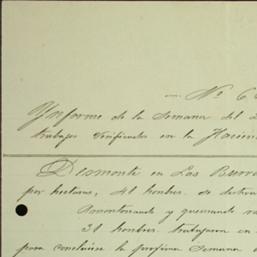 — No 6
Ynforme de la Semana del
trabajos verificados en la Hacien
Desmonte en Las Burra
por hectarea, 41 hombs. de
Amontonando y quemando ra
31 hombres trabajaron en
para concluirse la proxima Semana